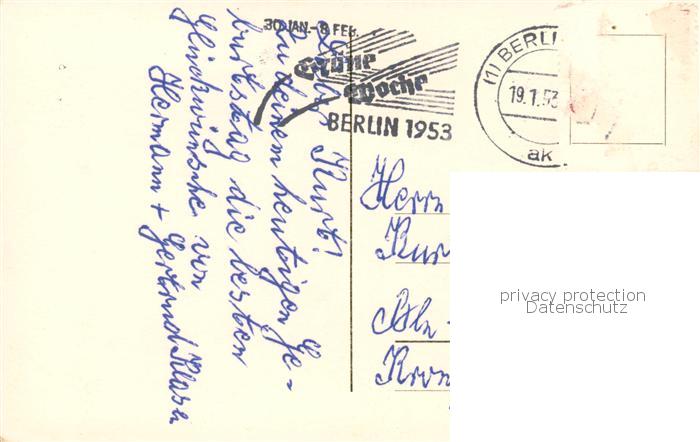 30. JAN. - 8. FEB.
Grüne
Woche
BERLIN 1953
(1) BERLI
19.1.53
ak
Kurt!
Zu deinem heutigen Ge-
burtstag die besten
Glückwünsche von
Hermann + Gertrud
Herrn
Kur
Bln-
Kron
privacy protection
Datenschutz